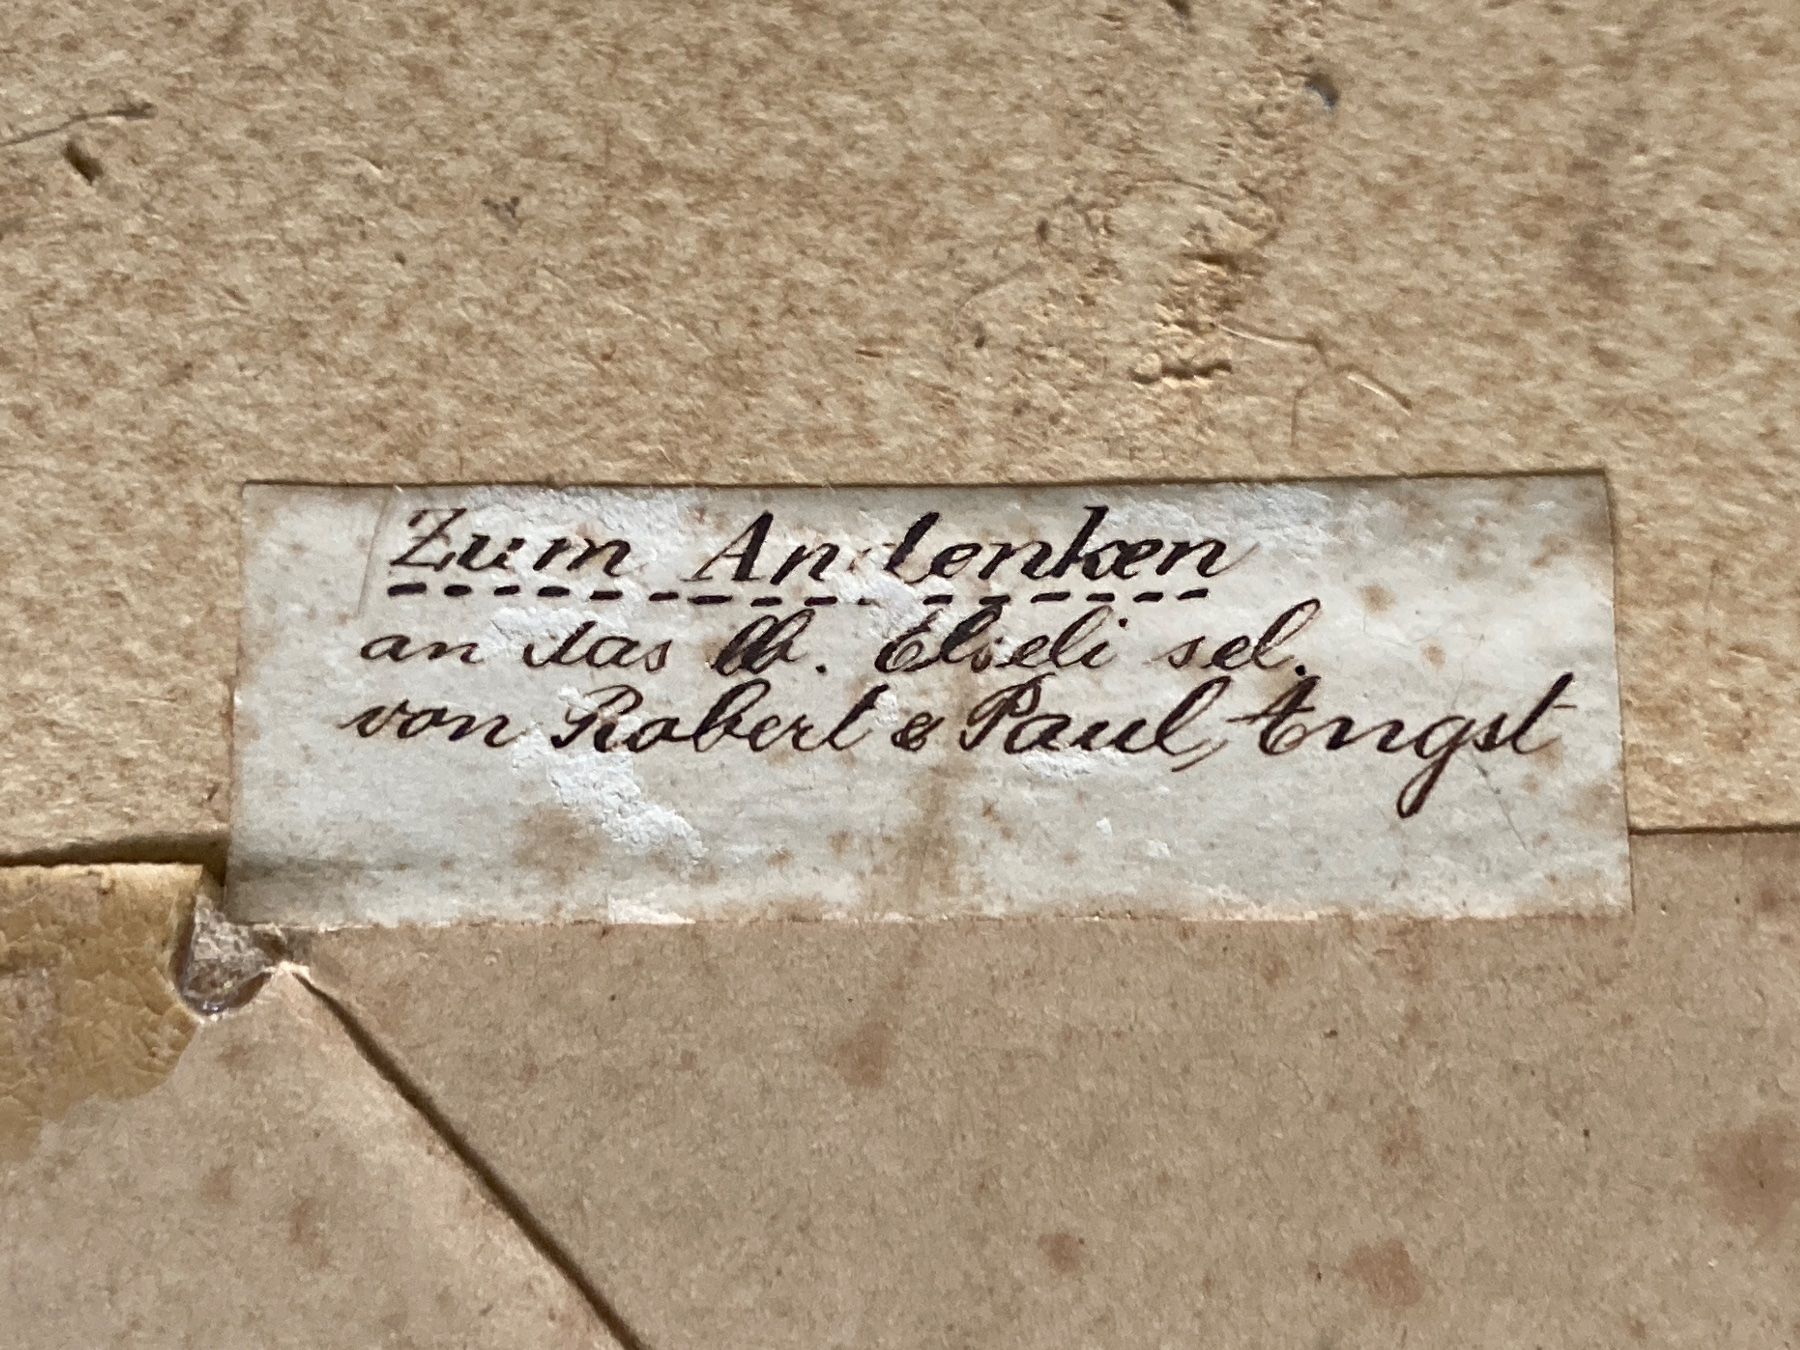 Zum Andenken
an das lb. Elseli sel.
von Robert & Paul, Angst